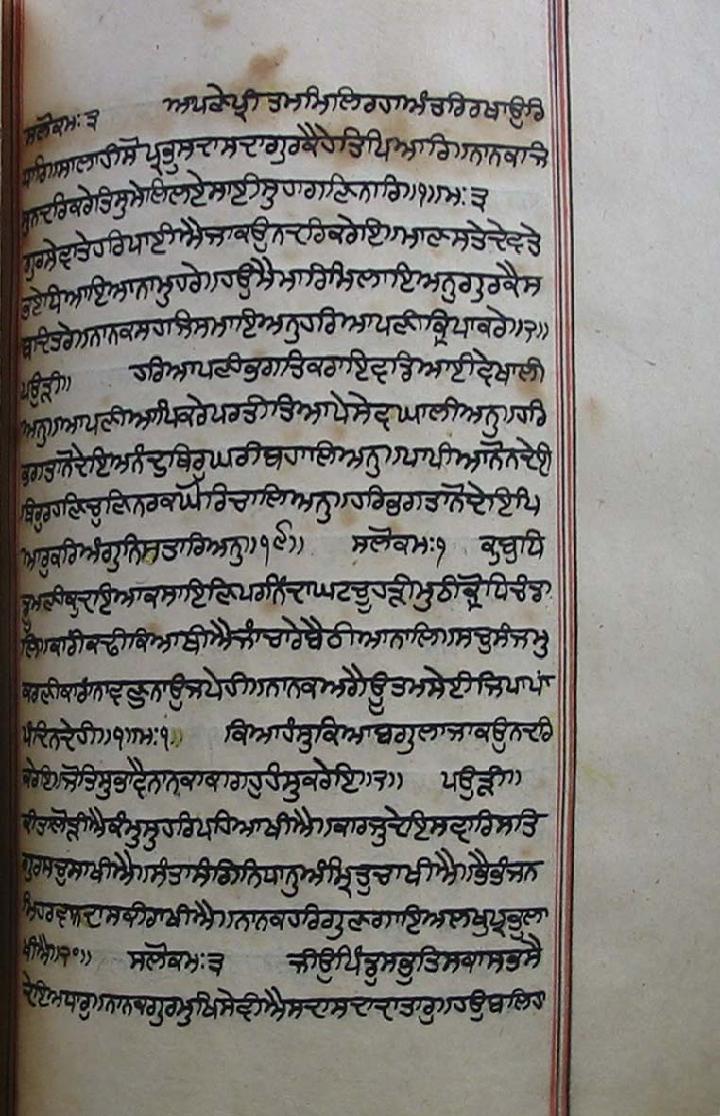 ਸਲੋਕਮਃ੩ ਅਪਣੇਪ੍ਰੀਤਮਮਿਲਿਰਹਾਅੰਤਰਿਰਖਾਉਰਿ
ਧਾਰਿ॥ਸਾਲਾਹੀਸੋਪ੍ਰਭੁਸਦਾਸਦਾਗੁਰਕੈਹੇਤਿਪਿਆਰਿ॥ਨਾਨਕਾਜਿ
ਸੁਨਦਰਿਕਰੇਤਿਸੁਮੇਲਿਲਏਸਾਈਸੁਹਾਗਣਿਨਾਰਿ॥੧॥ਮਃ੩
ਗੁਰਸੇਵਾਤੇਹਰਿਪਾਈਐਜਾਕਉਨਦਰਿਕਰੇਇ॥ਮਾਣਸਤੇਦੇਵਤੇ
ਭਏਧਿਆਇਆਨਾਮੁਹਰੇ॥ਹਉਮੈਮਾਰਿਮਿਲਾਇਅਨੁਗੁਰਕੈਸ
ਬਦਿਤਰੇ॥ਨਾਨਕਸਹਜਿਸਮਾਇਅਨੁਹਰਿਆਪਣੀਕ੍ਰਿਪਾਕਰੇ॥੨॥
ਪਉੜੀ॥ ਹਰਿਆਪਣੀਭਗਤਿਕਰਾਇਵਡਿਆਈਵੇਖਾਲੀ
ਅਨੁ॥ਆਪਣੀਆਪਿਕਰੇਪਰਤੀਤਿਆਪੇਸੇਵਘਾਲੀਅਨੁ॥ਹਰਿ
ਭਗਤਾਨੋਦੇਇਅਨੰਦੁਥਿਰੁਘਰੀਬਹਾਲਿਅਨੁ॥ਪਾਪੀਆਨੋਨਦੇਈ
ਥਿਰੁਰਹਣਿਚੁਣਿਨਰਕਘੋਰਿਚਾਲਿਅਨੁ॥ਹਰਿਭਗਤਾਨੋਦੇਇਪਿ
ਆਰੁਕਰਿਅੰਗੁਨਿਸਤਾਰਿਅਨੁ॥੧੯॥ ਸਲੋਕਮਃ੧ ਕੁਬੁਧਿ
ਡੂਮਣੀਕੁਦਇਆਕਸਾਇਣਿਪਰਨਿੰਦਾਘਟਚੂਹੜੀਮੁਠੀਕ੍ਰੋਧਿਚੰਡਾ
ਲਿ॥ਕਾਰੀਕਢੀਕਿਆਥੀਐਜਾਂਚਾਰੇਬੈਠੀਆਨਾਲਿ॥ਸਚੁਸੰਜਮੁ
ਕਰਣੀਕਾਰਾਂਨਾਵਣੁਨਾਉਜਪੇਹੀ॥ਨਾਨਕਅਗੈਊਤਮਸੇਈਜਿਪਾਪਾਂ
ਪੰਦਿਨਦੇਹੀ॥੧॥ਮਃ੧॥ ਕਿਆਹੰਸੁਕਿਆਬਗੁਲਾਜਾਕਉਨਦਰਿ
ਕਰੇਇ॥ਜੇਤਿਸੁਭਾਵੈਨਾਨਕਾਕਾਗਹੁਹੰਸੁਕਰੇਇ॥੨॥ ਪਉੜੀ॥
ਕੀਤਾਲੋੜੀਐਕੰਮੁਸੁਹਰਿਪਹਿਆਖੀਐ॥ਕਾਰਜੁਦੇਇਸਵਾਰਿਸਤਿ
ਗੁਰਸਚੁਸਾਖੀਐ॥ਸੰਤਾਸੰਗਿਨਿਧਾਨੁਅੰਮ੍ਰਿਤੁਚਾਖੀਐ॥ਭੈਭੰਜਨ
ਮਿਹਰਵਾਨਦਾਸਕੀਰਾਖੀਐ॥ਨਾਨਕਹਰਿਗੁਣਗਾਇਅਲਖੁਪ੍ਰਭੁਲਾ
ਖੀਐ॥੨੦॥ ਸਲੋਕਮਃ੩ ਜੀਉਪਿੰਡੁਸਭੁਤਿਸਕਾਸਭਸੈ
ਦੇਇਅਧਾਰੁ॥ਨਾਨਕਗੁਰਮੁਖਿਸੇਵੀਐਸਦਾਸਦਾਦਾਤਾਰੁ॥ਹਉਬਲਿਹ